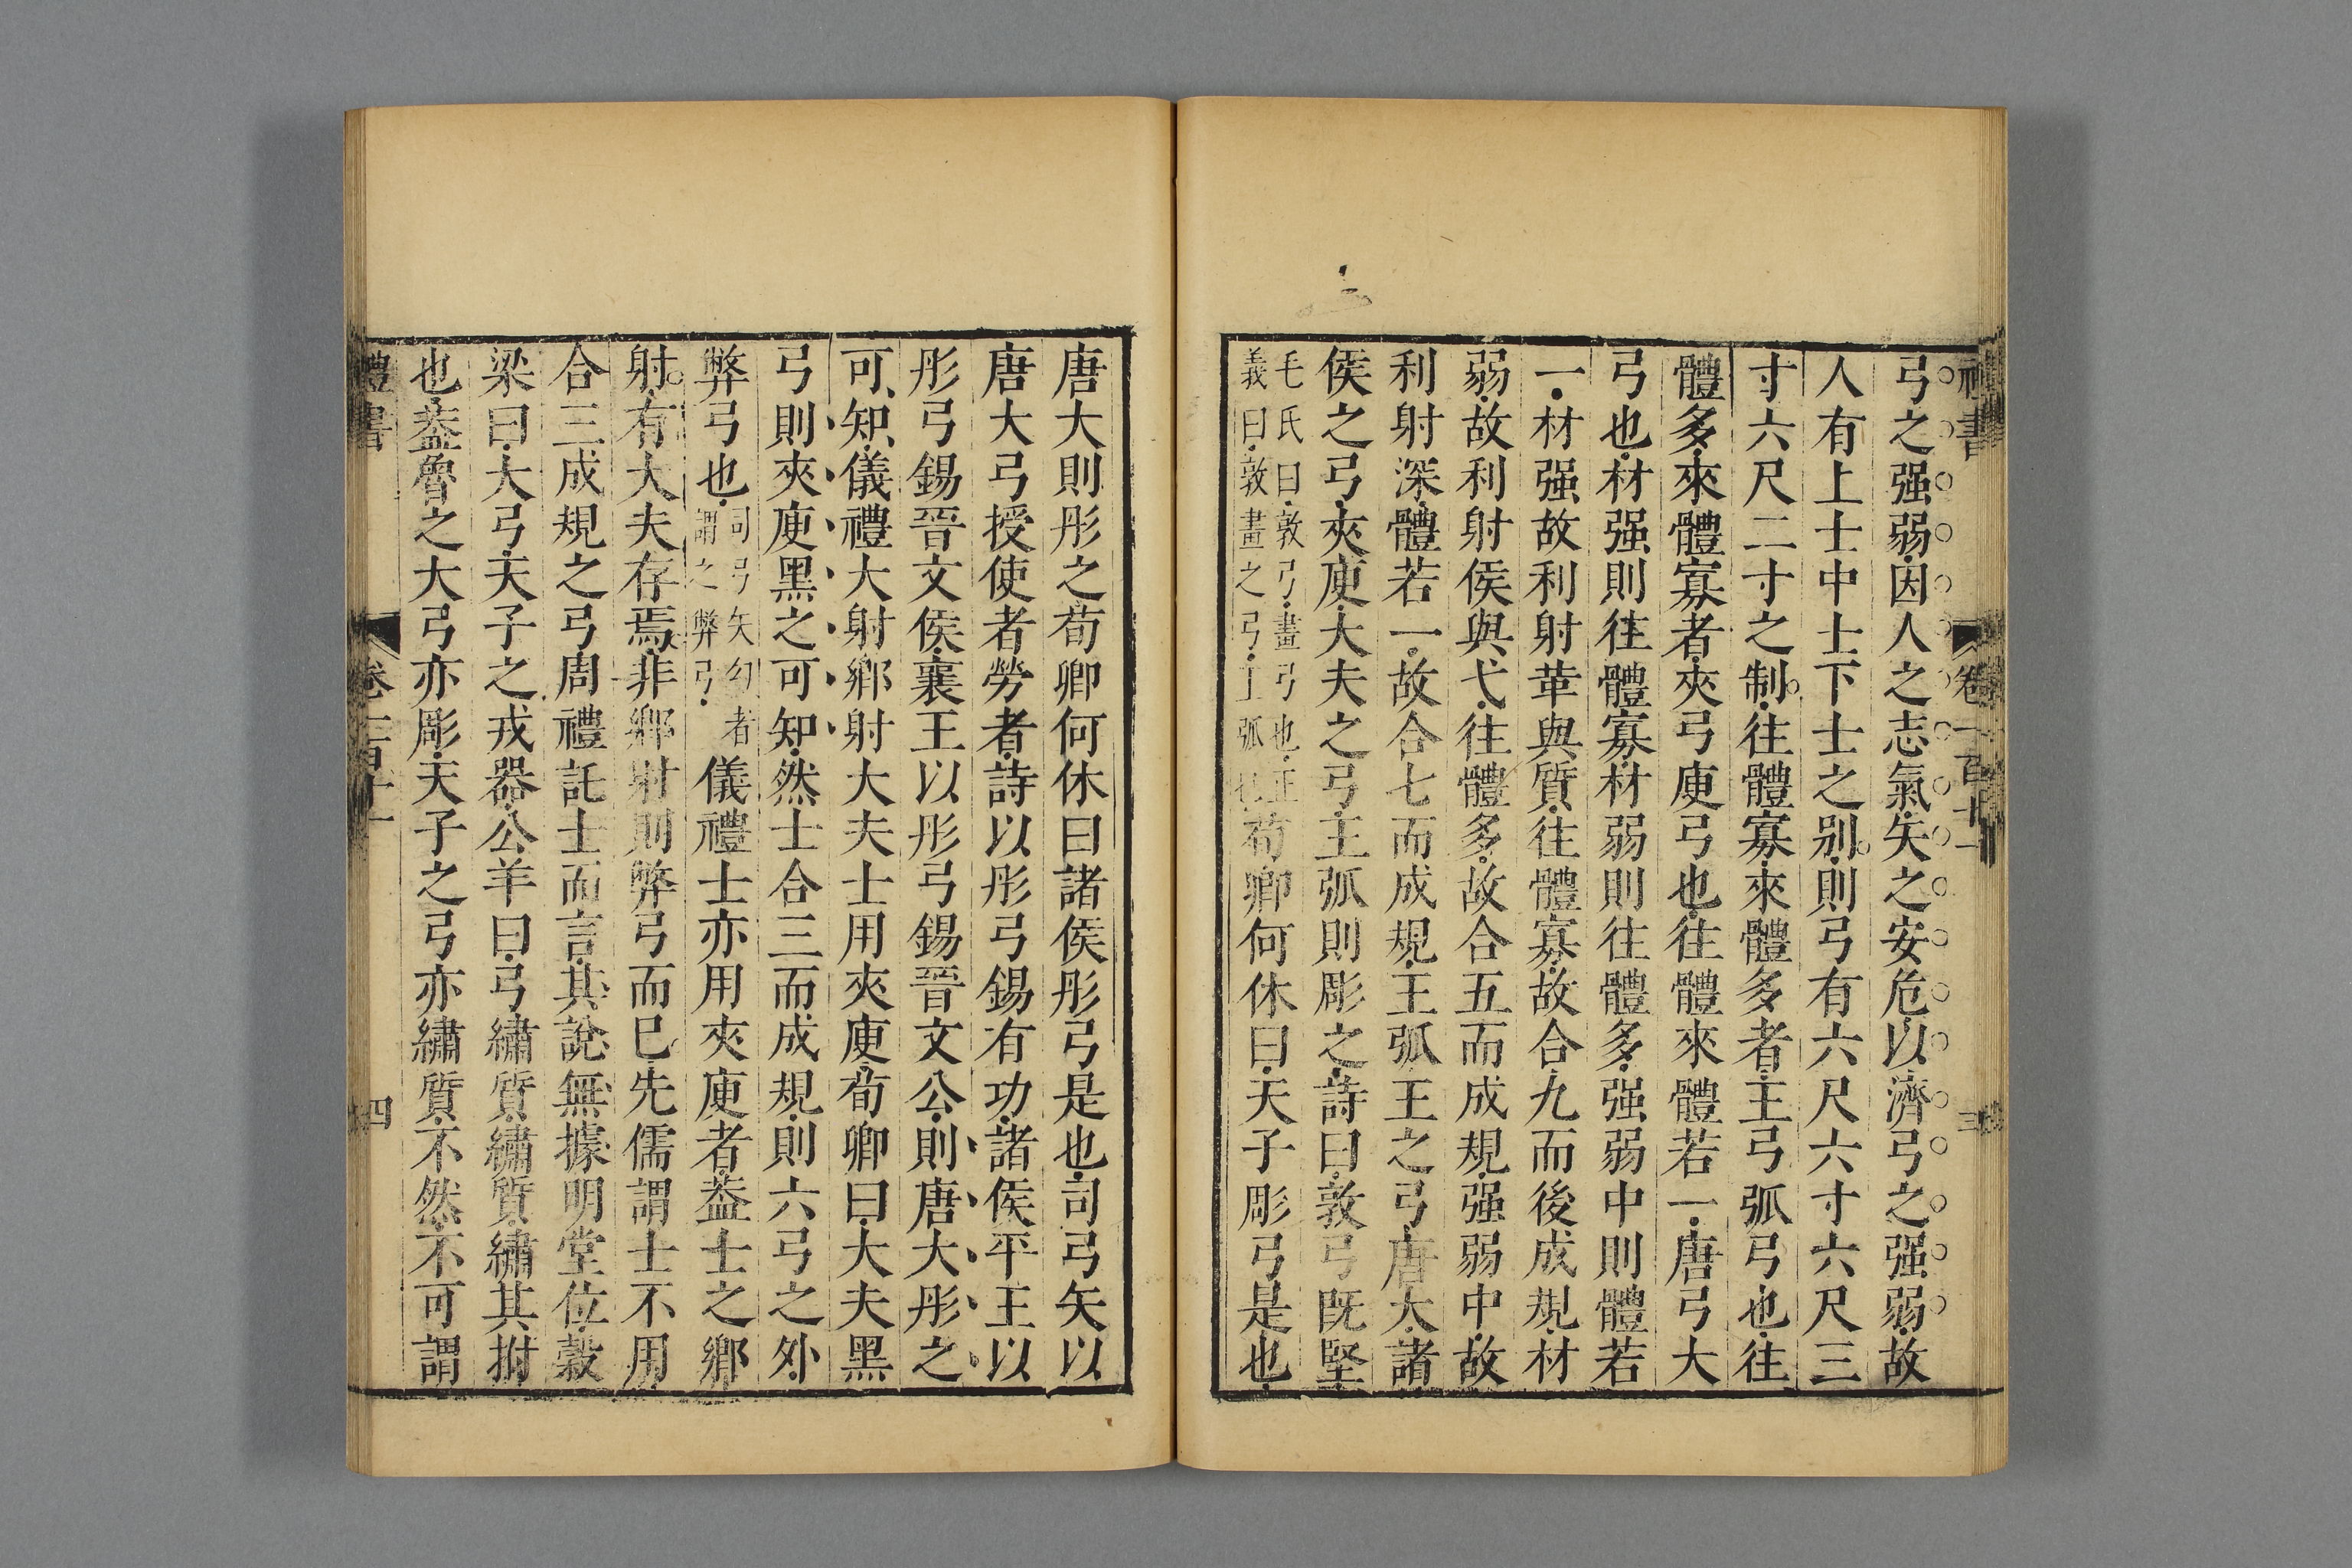 禮書 卷一百十一 三
弓之强弱因人之志氣矢之安危以濟弓之强弱故
人有上士中士下士之别則弓有六尺六寸六尺三
寸六尺二寸之制往體寡來體多者王弓弧弓也往
體多來體寡者夾弓庾弓也往體來體若一唐弓大
弓也材强則往體寡材弱則往體多强弱中則體若
一材强故利射革與質往體寡故合九而後成規材
弱故利射侯與弋往體多故合五而成規强弱中故
利射深體若一故合七而成規王弧王之弓唐大諸
侯之弓夾庾大夫之弓王弧則彫之詩曰敦弓既堅
毛氏曰敦弓畫弓也正
義曰敦畫之弓王弧也
荀卿何休曰天子彫弓是也
唐大則彤之荀卿何休曰諸侯彤弓是也司弓矢以
唐大弓授使者勞者詩以彤弓錫有功諸侯平王以
彤弓錫晉文侯襄王以彤弓錫晉文公則唐大彤之
可知儀禮大射鄉射大夫士用夾庾荀卿曰大夫黑
弓則夾庾黑之可知然士合三而成規則六弓之外
弊弓也
司弓矢幻者
謂之弊弓
儀禮士亦用夾庾者葢士之鄉
射有大夫存焉非鄉射則弊弓而已先儒謂士不用
合三成規之弓周禮託士而言其說無據明堂位榖
梁曰大弓天子之戎器公羊曰弓繡質繡質繡其拊
也葢魯之大弓亦彫天子之弓亦繡質不然不可謂
禮書 卷一百十一 四